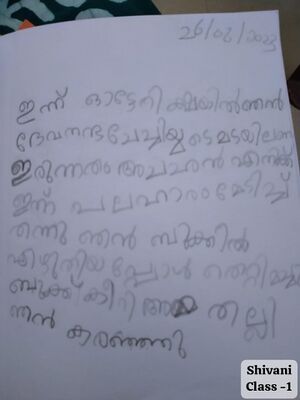 26/08/2023
ഇന്ന് ഓട്ടോറിക്ഷയിൽഞൻ
ദേവനന്ദചേച്ചിയുടെ മടയിലാണ
ഇരുന്നതം അച്ചൻ എനിക്ക്
ഇന്ന് പലഹാരം മേടിച്ച്
തന്നു ഞൻ ബുക്കിൽ
എഴുതിയപ്പോൾ തെറ്റിയ
ബുക്ക് കീറി അമ്മ തല്ലി
ഞൻ കരഞ്ഞു
Shivani
Class -1